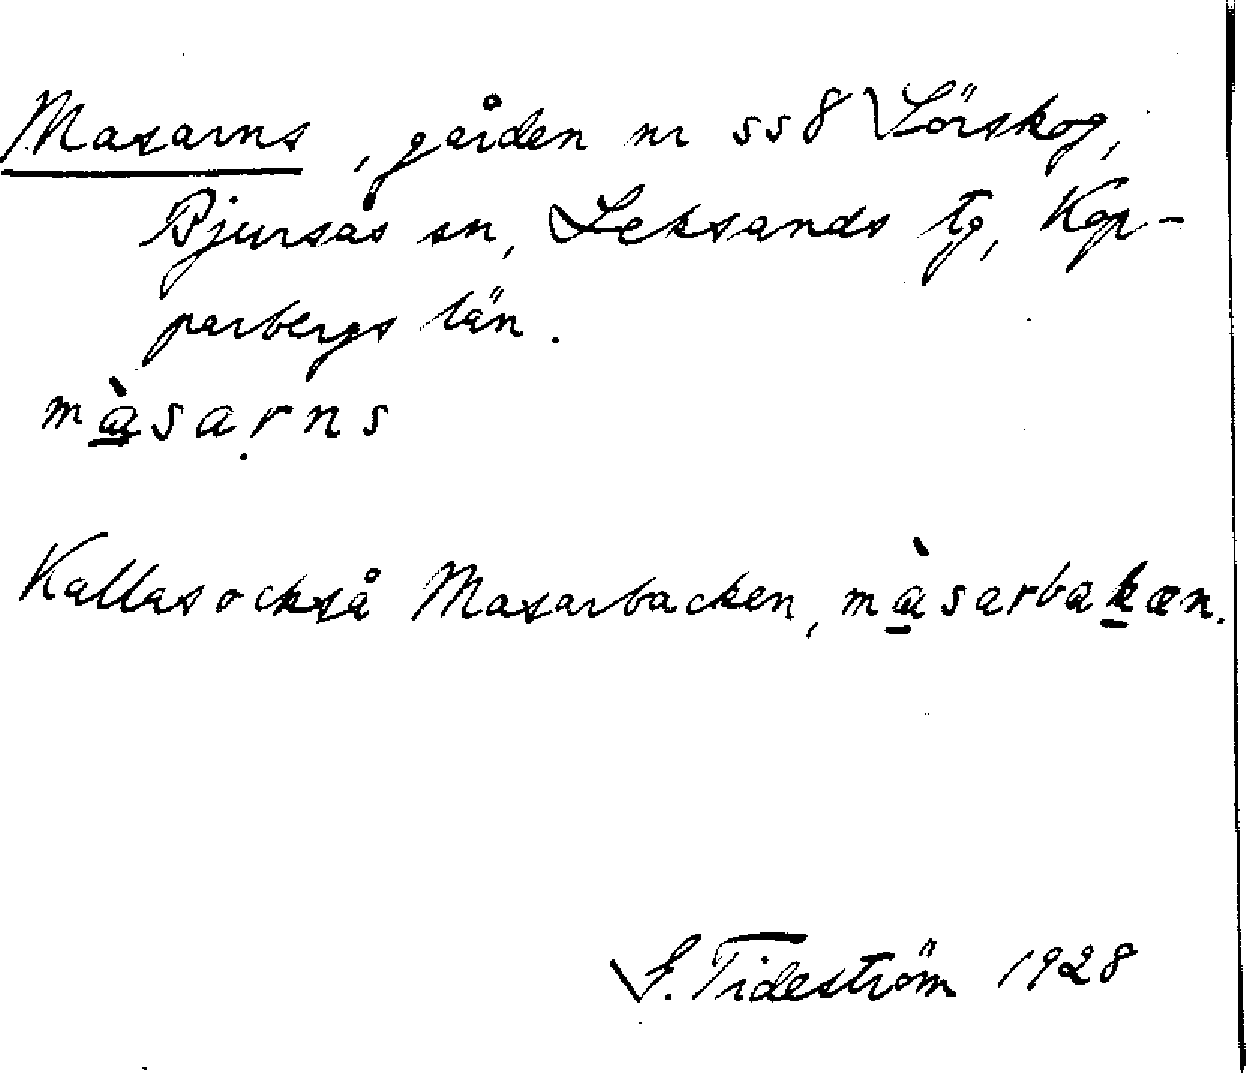 Masarns, gården nr 558 Lörskog,
Bjursås sn, Leksands tg, Kop-
parbergs län.
mà̱sarṇs
Kallas också Masarbacken, mà̱sarbaḵæn.
G. Tideström 1928